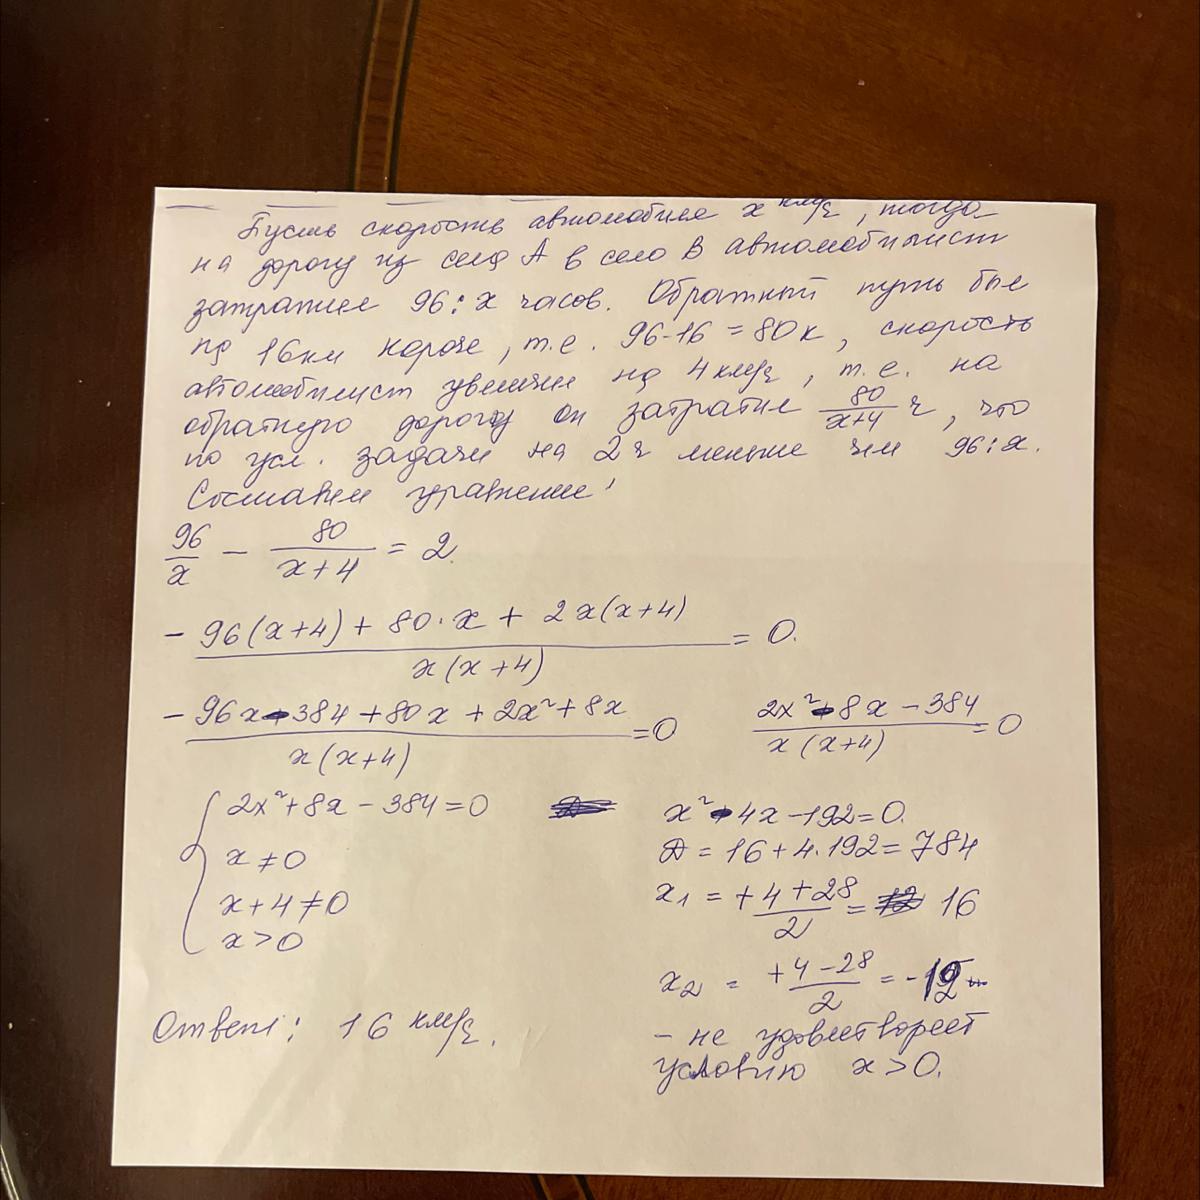 Пусть скорость автомобиля x км/ч, тогда
на дорогу из села А в село В автомобилист
затратил 96 : x часов. Обратный путь был
на 16 км короче, т.е. 96-16 = 80к, скорость
автомобилист увеличил на 4 км/ч, т.е. на
обратную дорогу он затратил 80/(x+4) ч, что
по усл. задачи на 2 ч меньше чем 96:x.
Составим уравнение:
96/x - 80/(x+4) = 2.
- (96(x+4) + 80·x + 2x(x+4))/(x(x+4)) = 0.
- (96x - 384 + 80x + 2x² + 8x)/(x(x+4)) = 0
(2x² - 8x - 384)/(x(x+4)) = 0
2x² + 8x - 384 = 0
x ≠ 0
x + 4 ≠ 0
x > 0
x² - 4x - 192 = 0.
Д = 16 + 4·192 = 784
x₁ = (+4 + 28)/2 = 16
x₂ = (+4 - 28)/2 = -12
- не удовлетворяет
условию x > 0.
Ответ: 16 км/ч.